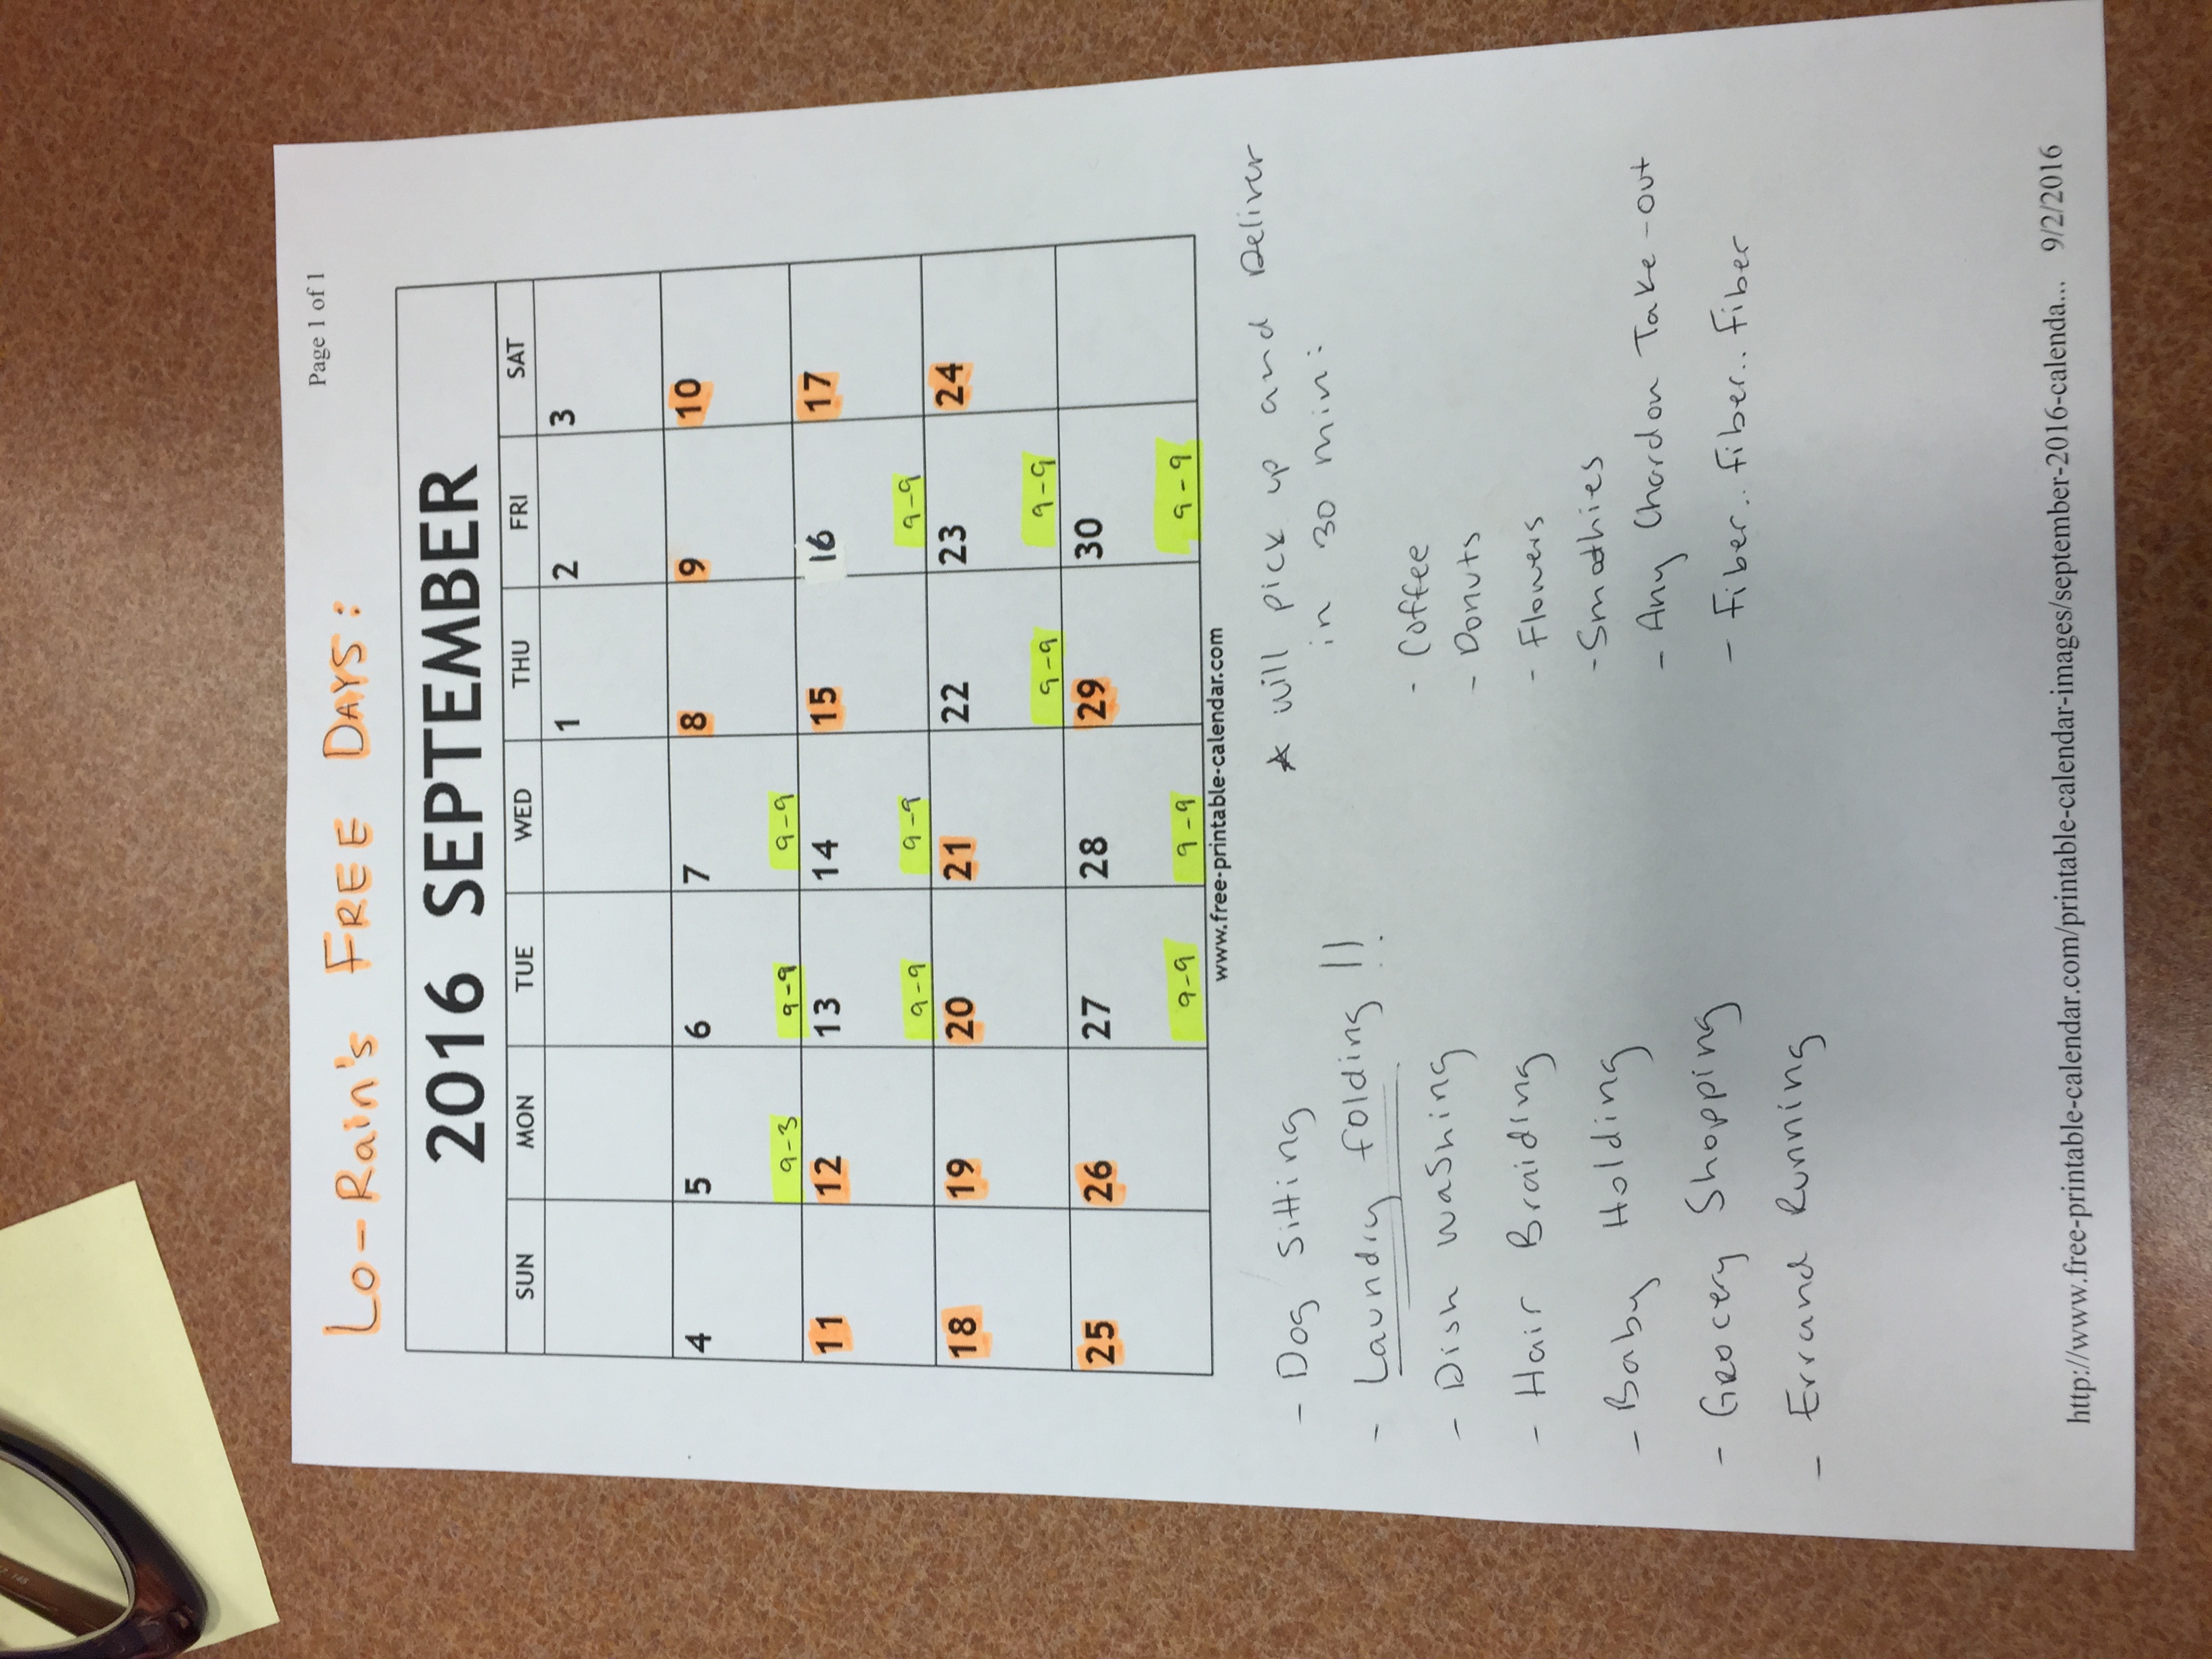 Page 1 of 1
Lo-Rain's FREE DAYS:
2016 SEPTEMBER
SUN MON TUE WED THU FRI SAT
1 2 3
4 5 6 7 8 9 10
9-3 9-9 9-9
11 12 13 14 15 16 17
9-9 9-9 9-9
18 19 20 21 22 23 24
9-9 9-9
25 26 27 28 29 30
9-9 9-9 9-9
www.free-printable-calendar.com
- Dog Sitting
- Laundry folding !!
- Dish washing
- Hair Braiding
- Baby Holding
- Grocery Shopping
- Errand Running
★ will pick up and Deliver
in 30 min:
- Coffee
- Donuts
- Flowers
- Smoothies
- Any Chardon Take-out
- Fiber.. fiber.. fiber
http://www.free-printable-calendar.com/printable-calendar-images/september-2016-calenda... 9/2/2016